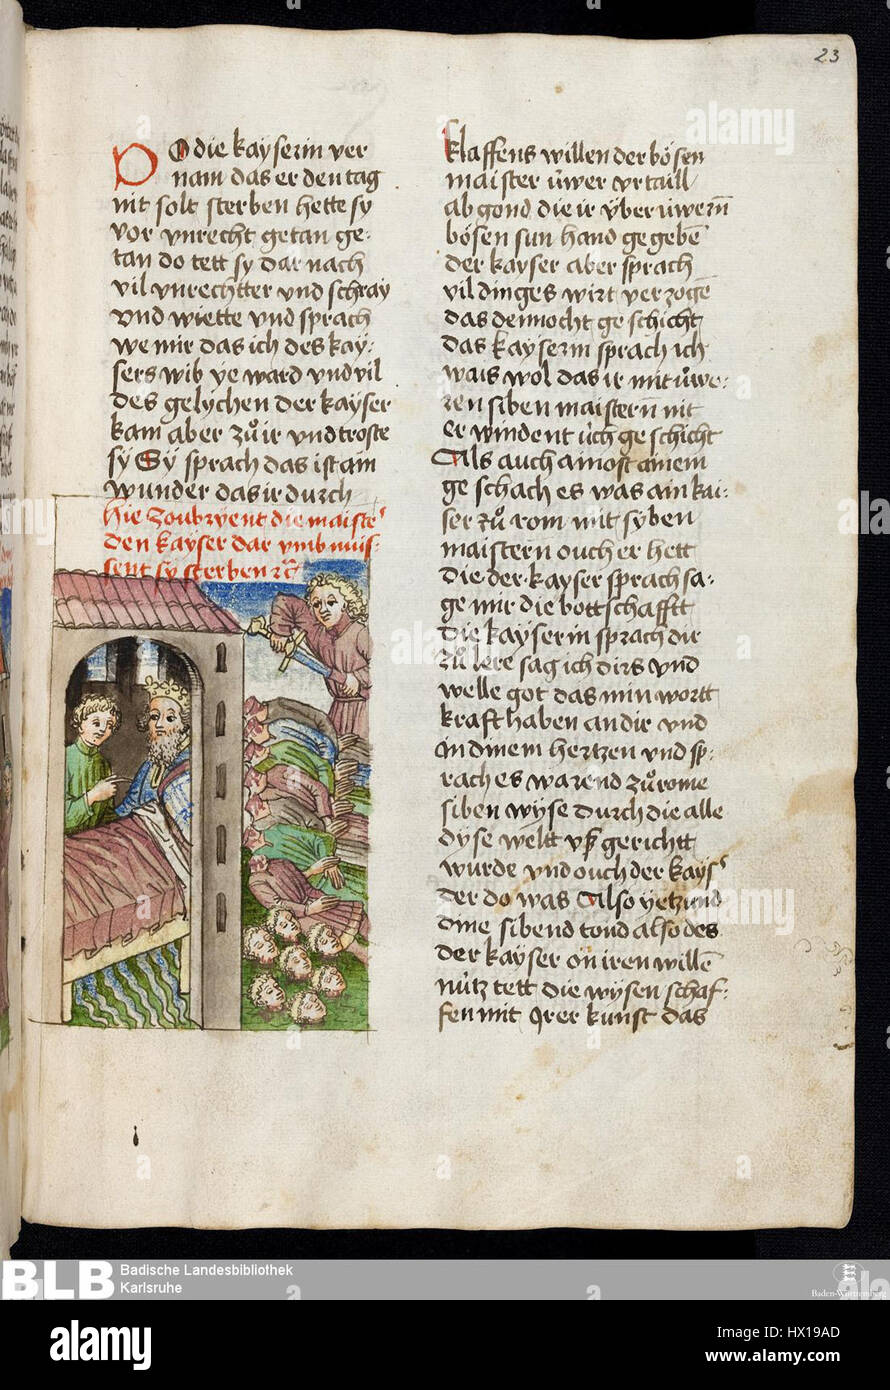 23
Do die kayserin ver
nam das er den tag
nit solt sterben hette sy
vor vnrecht getan ge-
tan do tett sy dar nach
vil vnrechtter vnd schray
vnd wiette vnd sprach
we mir das ich des kay-
sers wib ye ward vnd vil
des gelychen der kayser
kam aber zů ir vnd troste
sy Sy sprach das ist ain
wunder das ir durch
hie zoubryent die maister
den kayser dar vmb mus-
sent sy sterben
klaffens willen der bösen
maister ůwer vrtaill
ab gond die ir ÿber ůwern̄
bösen sun hand gegebē
der kayser aber sprach
vil dinges wirt verzogē
das dennocht geschicht
das kayserin sprach ich
wais wol das ir mit ůwe-
ren siben maistern̄ nit
er windent ůch geschicht
Als auch ainost ainem
geschach es was ain kai-
ser zů rom mit syben
maistern ouch er hett
die der kayser sprach sa-
ge mir die bottschafft
die kayserin sprach dir
zů lere sag ich dirs vnd
welle got das min wortt
kraft haben an dir vnd
in dinem hertzen vnd sp-
rach es warend zů rome
siben wyse durch die alle
dyse weltt vß gerichtt
wurde vnd ouch der kayser
der do was Also yetzund
dine sibend tond also des
der kayser ön iren willē
nůtz tett die wysen schaf-
fen mit irer kunst das
BLB
Badische Landesbibliothek
Karlsruhe
Baden-Württemberg
alamy
Image ID: HX19AD
www.alamy.com